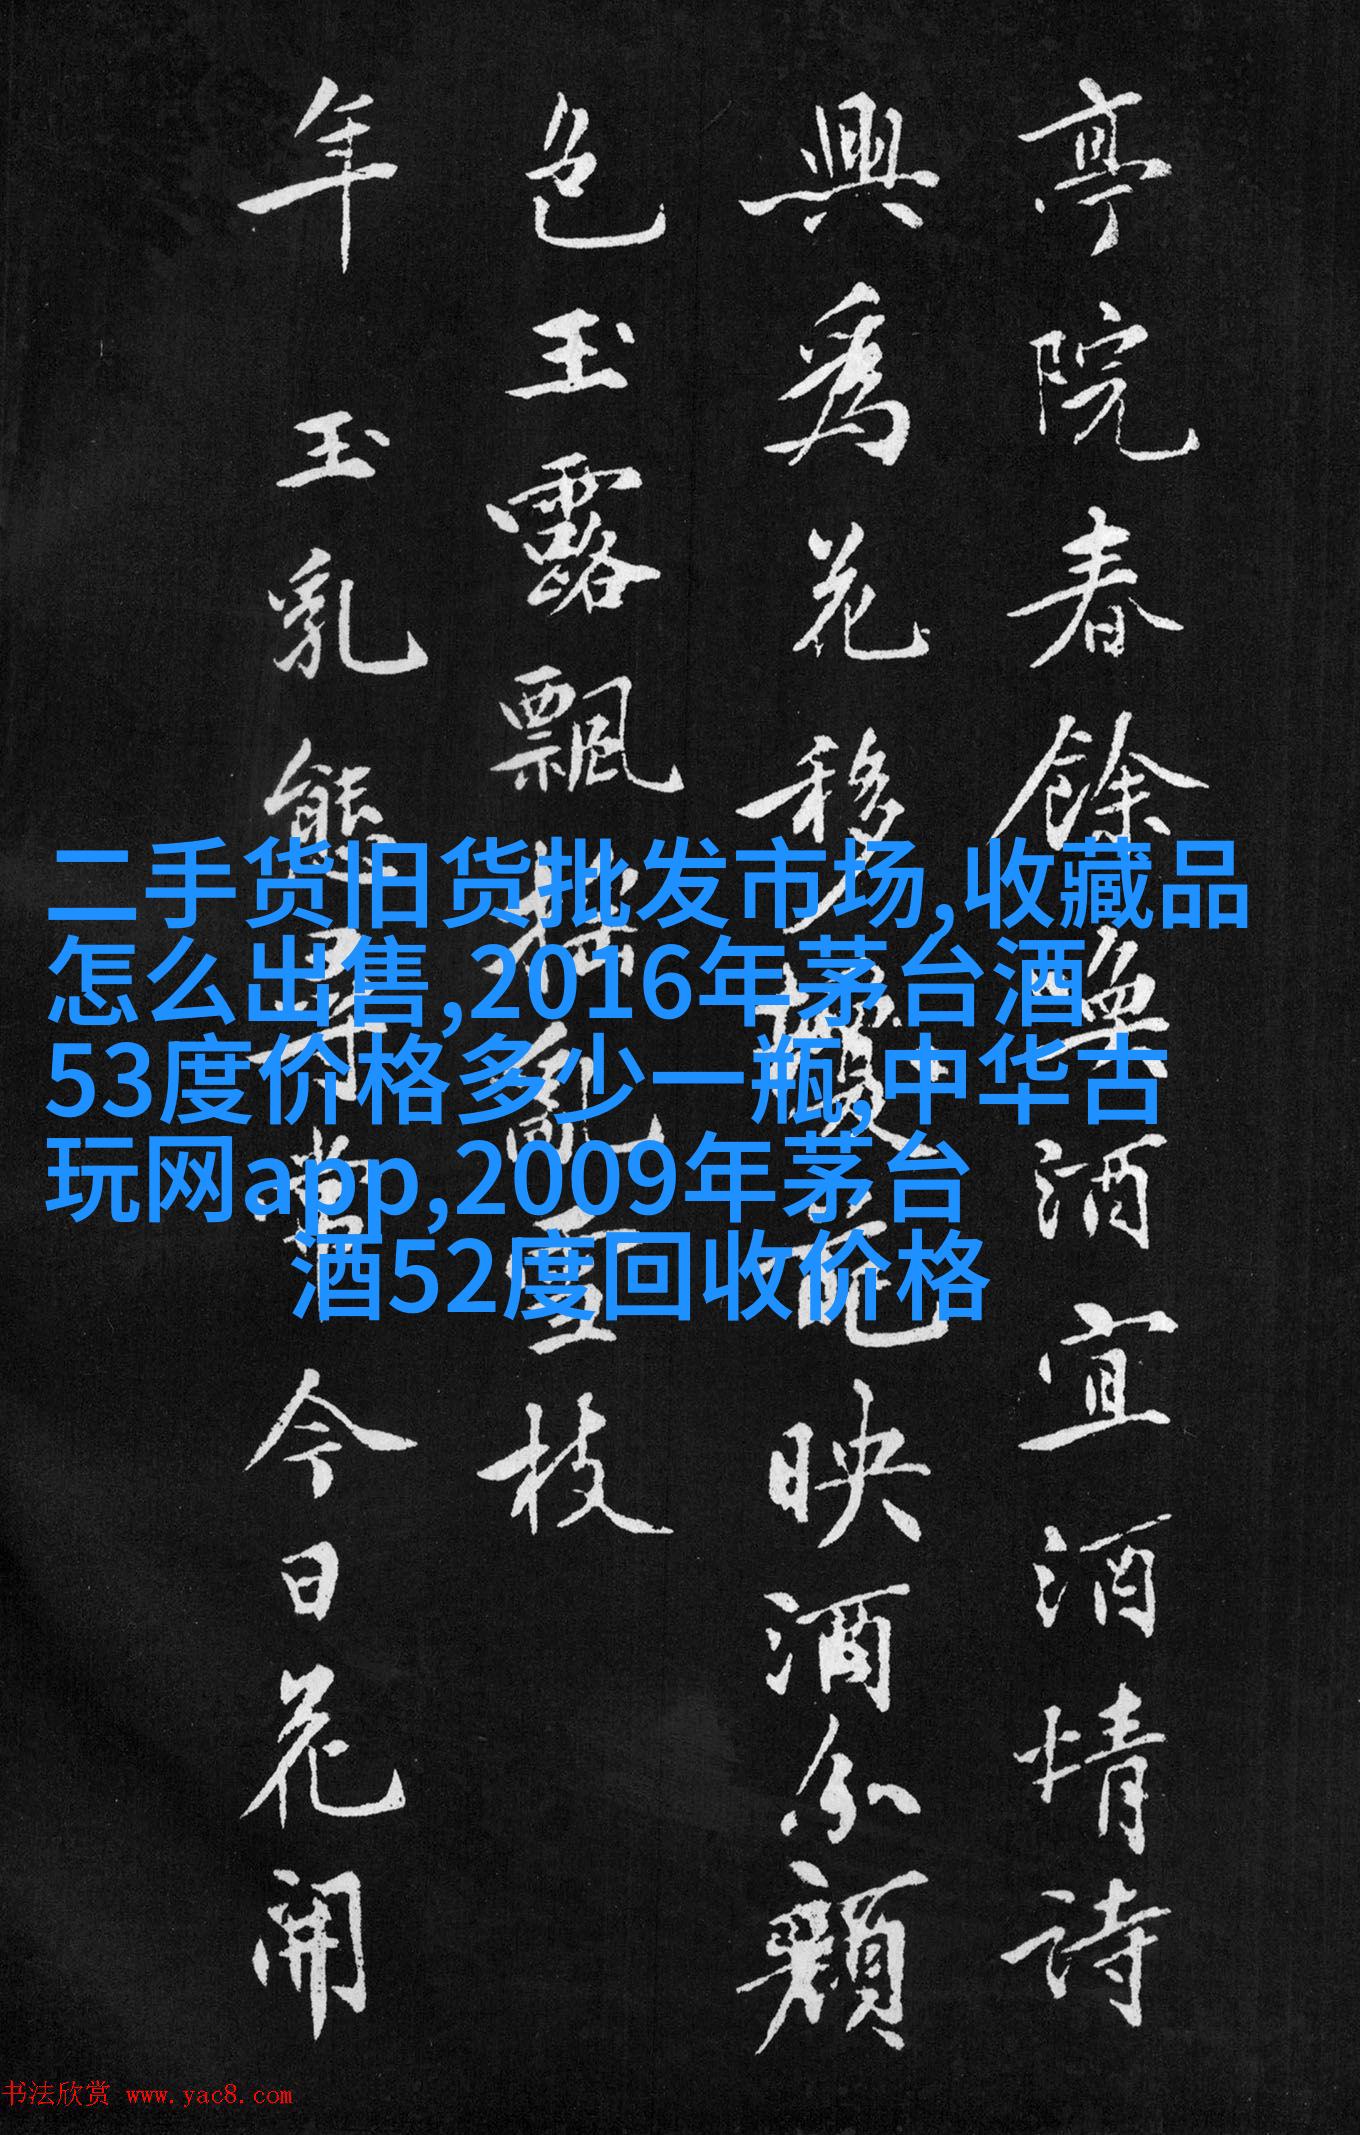 亭院春餘酒宜酒情詩
興為花移映酒分顏
色玉露飄搖亂雪枝
年玉乳態尋常今日花開
二手货旧货批发市场,收藏品
怎么出售,2016年茅台酒
53度价格多少一瓶,中华古
玩网app,2009年茅台
酒52度回收价格
书法欣赏 www.yac8.com